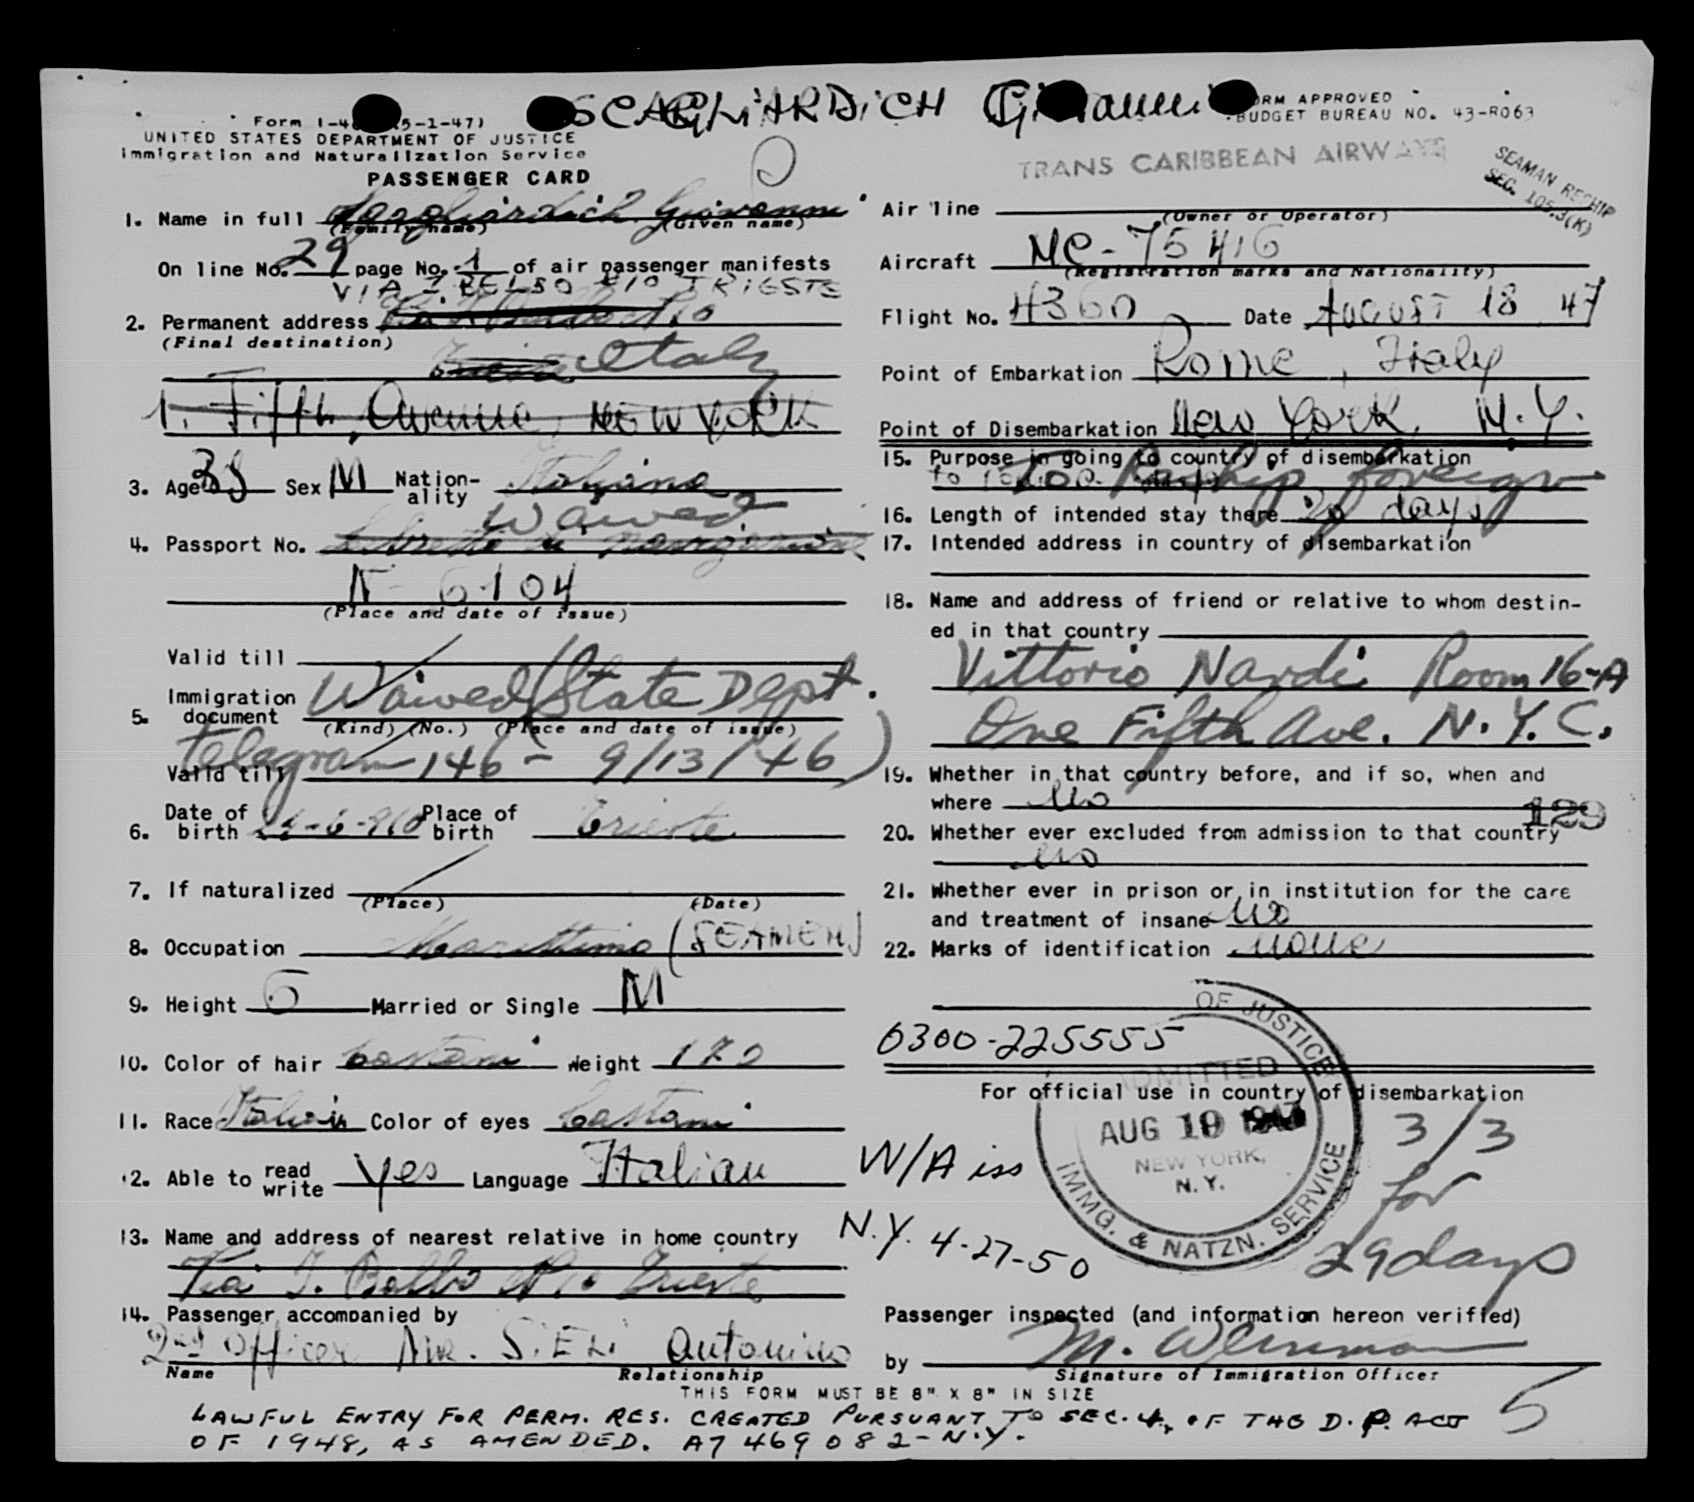 SCAGLIARDICH Giovanni
FORM APPROVED
BUDGET BUREAU NO. 43-R063
Form I-4 (5-1-47)
UNITED STATES DEPARTMENT OF JUSTICE
Immigration and Naturalization Service
PASSENGER CARD
TRANS CARIBBEAN AIRWAYS
SEAMAN RESHIP
SEC. 105.3(K)
1. Name in full Scagliardich Giovanni
(Family name) (Given name)
On line No. 29 page No. 1 of air passenger manifests
VIA I. BELSO N10 TRIESTE
2. Permanent address
(Final destination)
Italy
1. Fifth Avenue, NEW YORK
3. Age 38 Sex M Nationality Italiana
Waived
4. Passport No. Libretto di navigazione
N 6104
(Place and date of issue)
Valid till
5. Immigration document Waived (State Dept.
(Kind) (No.) (Place and date of issue)
telegram 146 - 9/13/46)
Valid till
6. Date of birth Place of birth Trieste
7. If naturalized
(Place) (Date)
8. Occupation Marittimo (SEAMEN)
9. Height 6 Married or Single M
10. Color of hair castani Weight 170
11. Race Italian Color of eyes Castani
12. Able to read write Yes Language Italian
13. Name and address of nearest relative in home country
Via I. Balbo N 10 Trieste
14. Passenger accompanied by
2nd Officer Mr. Antonino
Name Relationship
Air line
(Owner or Operator)
Aircraft NC-75416
(Registration marks and Nationality)
Flight No. 4360 Date AUGUST 18 47
Point of Embarkation Rome, Italy
Point of Disembarkation New York, N.Y.
15. Purpose in going to country of disembarkation
To Reship foreign
16. Length of intended stay there 29 days
17. Intended address in country of disembarkation
18. Name and address of friend or relative to whom destined in that country
Vittorio Nardi Room 16-A
One Fifth Ave. N.Y.C.
19. Whether in that country before, and if so, when and
where no
129
20. Whether ever excluded from admission to that country
no
21. Whether ever in prison or in institution for the care
and treatment of insane no
22. Marks of identification none
0300-225555
For official use in country of disembarkation
OF JUSTICE
ADMITTED
AUG 19 1947
NEW YORK,
N.Y.
IMMG. & NATZN. SERVICE
3/3
for
29 days
W/A iss
N.Y. 4-27-50
Passenger inspected (and information hereon verified)
by
Signature of Immigration Officer
THIS FORM MUST BE 8" X 8" IN SIZE
LAWFUL ENTRY FOR PERM. RES. CREATED PURSUANT TO SEC. 4, OF THE D.P. ACT
OF 1948, AS AMENDED. A7 469 082-N.Y.
5